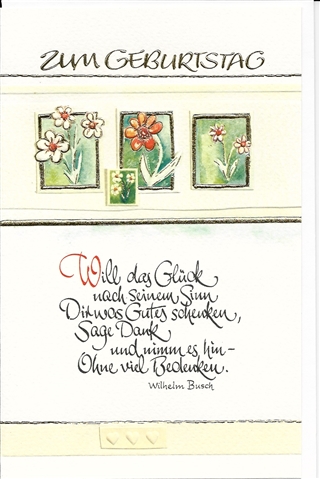 ZUM GEBURTSTAG
Will das Glück
nach seinem Sinn
Dir was Gutes schenken,
Sage Dank
und nimm es hin –
Ohne viel Bedenken.
Wilhelm Busch